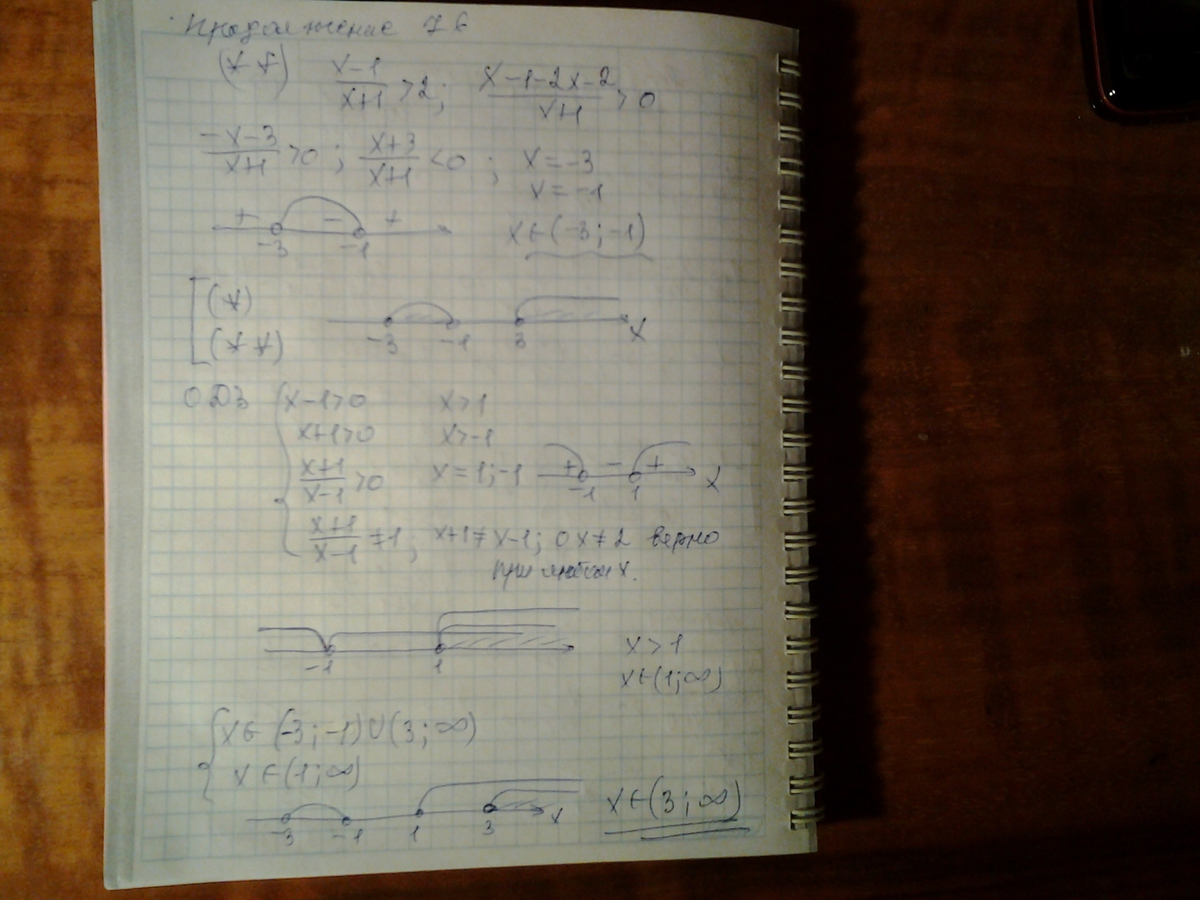 Продолжение 7б
(**) x-1/x+1 >2; x-1-2x-2/x+1 >0
-x-3/x+1 >0; x+3/x+1 <0; x=-3
x=-1
+ - +
-3 -1 x∈(-3;-1)
[(*)
(**) -3 -1 3 x
ОДЗ {x-1>0 x>1
x+1>0 x>-1
x+1/x-1 >0 x=1;-1 + - + -1 1 x
x+1/x-1 ≠1; x+1≠x-1; 0x≠2 верно
при любом x.
-1 1 x>1
x∈(1;∞)
{x∈(-3;-1)∪(3;∞)
x∈(1;∞)
-3 -1 1 3 x x∈(3;∞)